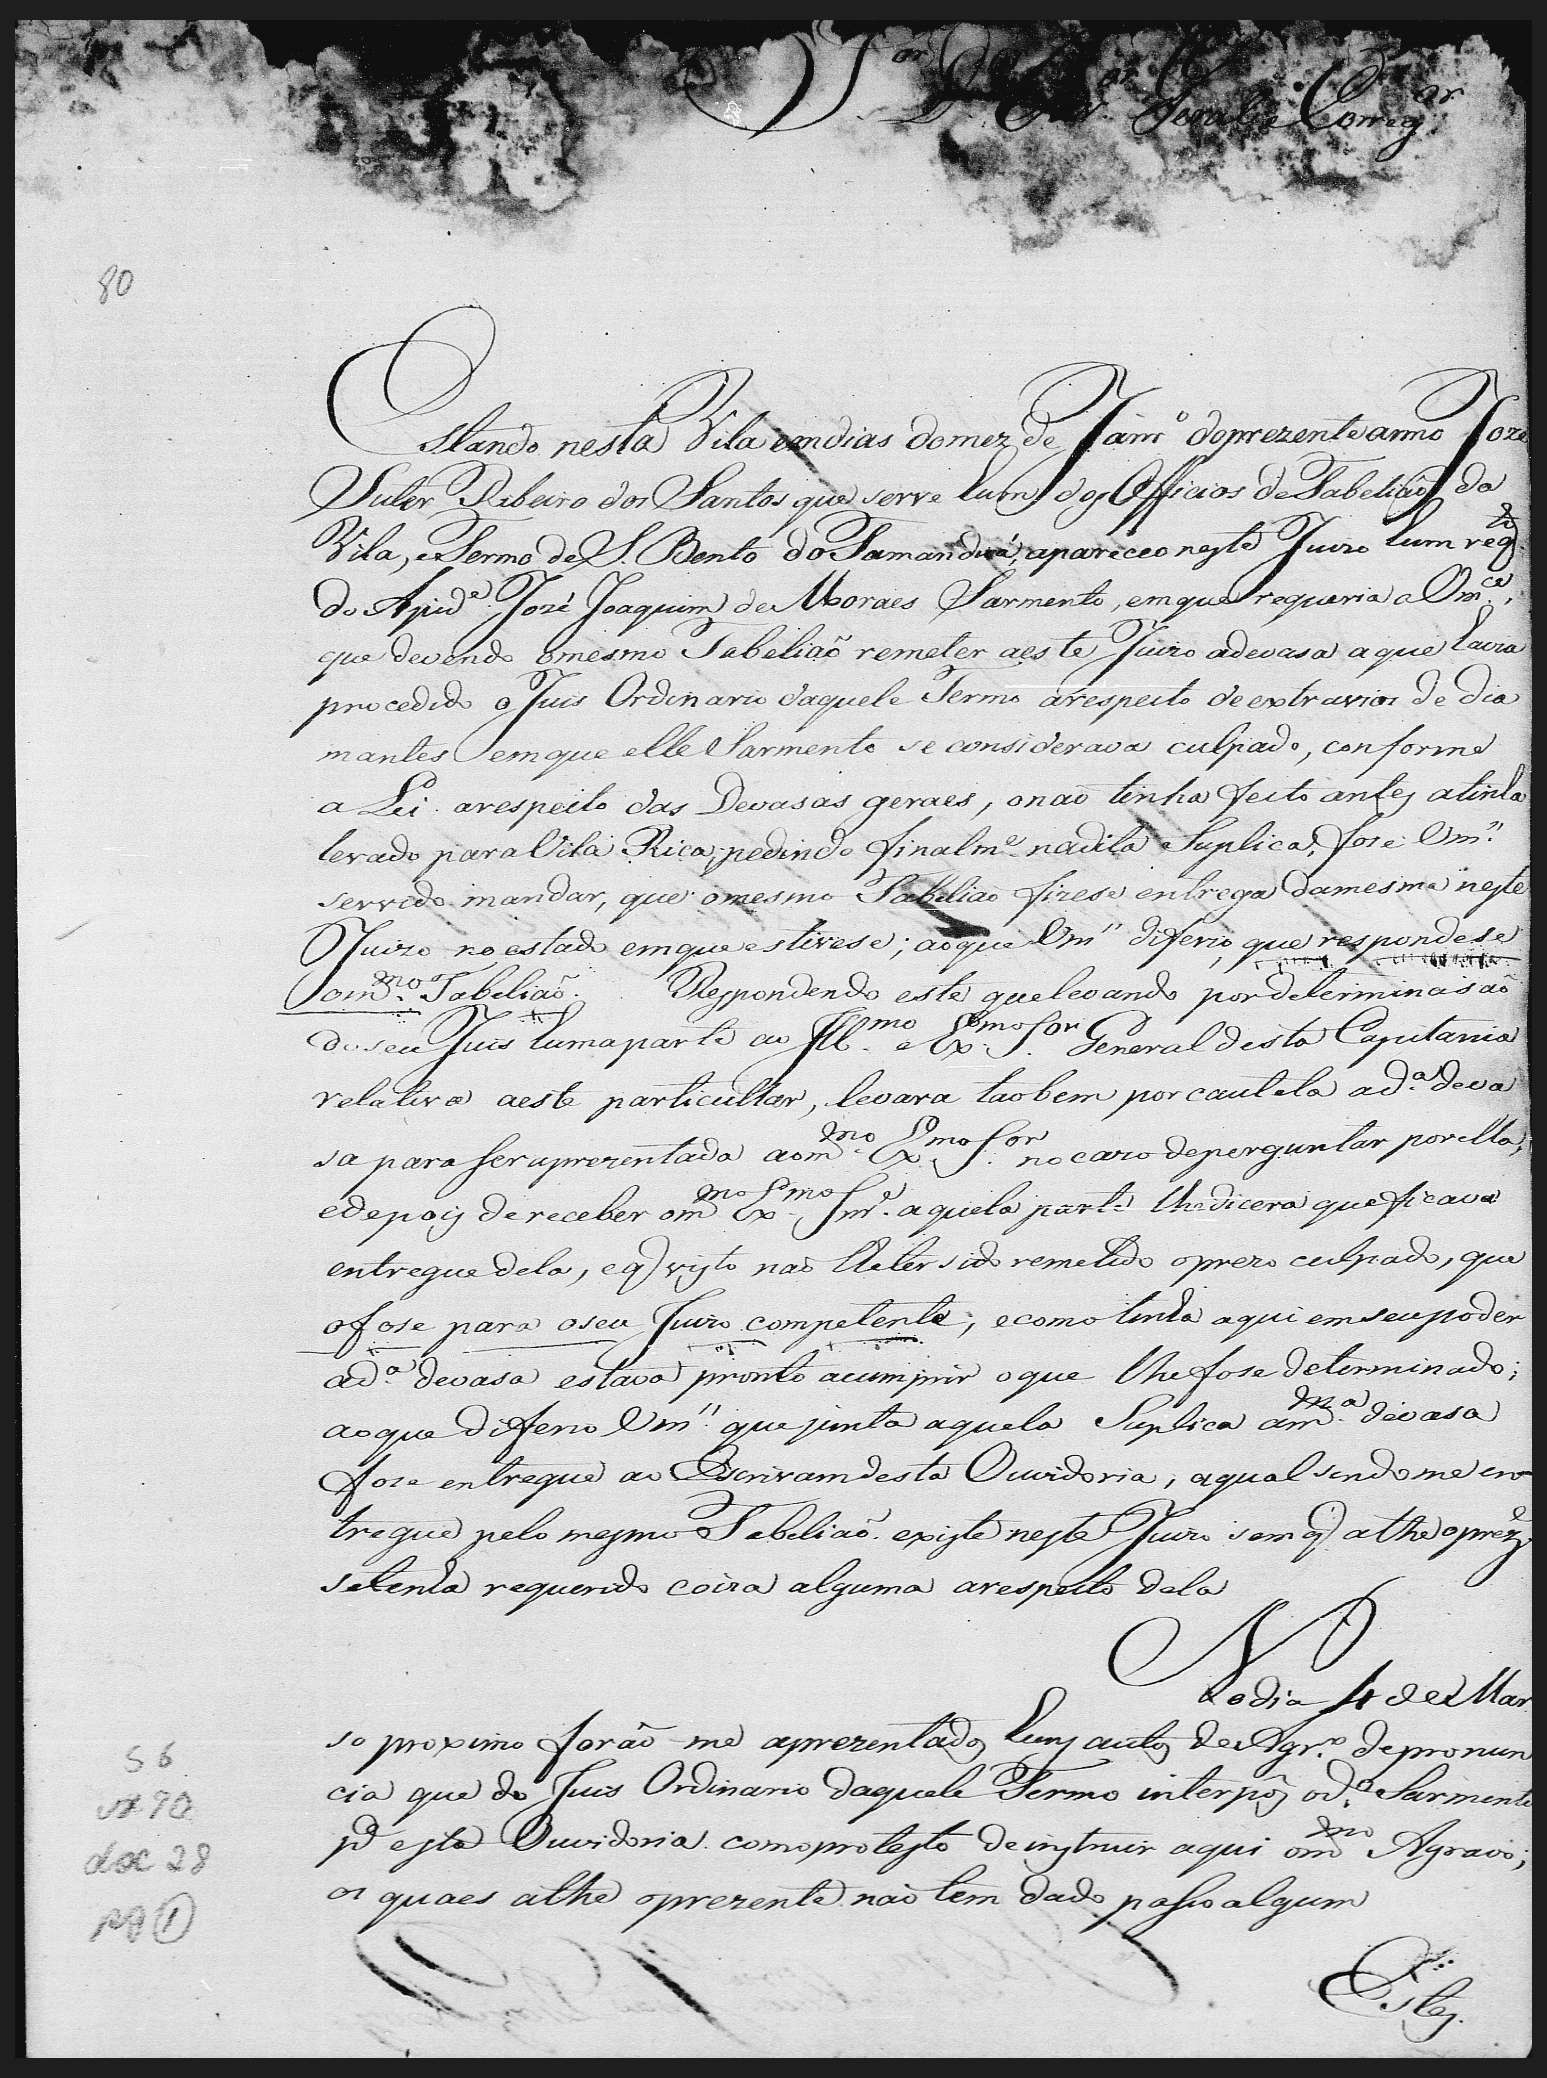 S.or D.r Ouv.or Geral e Correg.or
80
Estando nesta Vila em dias do mez de Janr.o do prezente anno Joze
Suter Ribeiro dos Santos que serve hum dos Officios de Tabeliaõ da
Vila, e Termo de S. Bento do Tamanduá, apareceo neste Juizo hum req.to
do Ajud.e José Joaquim de Moraes Sarmento, em que requeria a Vm.ce,
que devendo o mesmo Tabeliaõ remeter a este Juizo a devasa a que havia
procedido o Juis Ordinario daquele Termo a respeito de extravios de dia
mantes em que elle Sarmento se considerava culpado, conforme
a Lei a respeito das Devasas geraes, o nao tinha feito antes a tinha
levado para Vila Rica, pedindo finalm.e na dita Suplica, fose Vm.ce
servido mandar, que o mesmo Tabeliao fizese entrega da mesma neste
Juizo no estado em que estivese; ao que Vm.ce diferio, que respondese
o m.mo Tabeliaõ. Respondendo este que levando por determinasaõ
do seu Juis huma parte ao Ill.mo e Ex.mo S.or General desta Capitania
relativa a este particullar, levara taobem por cautela a d.a deva
sa para ser aprezentada ao m.mo Ex.mo S.or no cazo de perguntar por ella,
e depois de receber o m.mo Ex.mo Snr.e aquela parte lhe dicera que ficava
entregue dela, e q' visto naõ lhe ter sido remetido o prezo culpado, que
o fose para o seu Juizo competente, e como tinha aqui em seu poder
a d.a devasa estava pronto a cumprir o que lhe fose determinado;
ao que diferio Vm.ce que junta aquela Suplica a m.ma devasa
fose entregue ao Escrivam desta Ouvidoria, a qual sendo me en
tregue pelo mesmo Tabeliaõ existe neste Juizo sem q' athe o prez.e
se tenha requerido coiza alguma a respeito dela
No dia 4 de Mar
so proximo foraõ me aprezentados huns autos de Agr.o de pronun
cia que do Juis Ordinario daquele Termo interpôs o d.o Sarmento
p.a esta Ouvidoria com o protesto de instruir aqui o m.mo Agravo;
os quaes athe o prezente naõ tem dado passo algum
Estes
S 6
cx 90
doc 28
pg 1